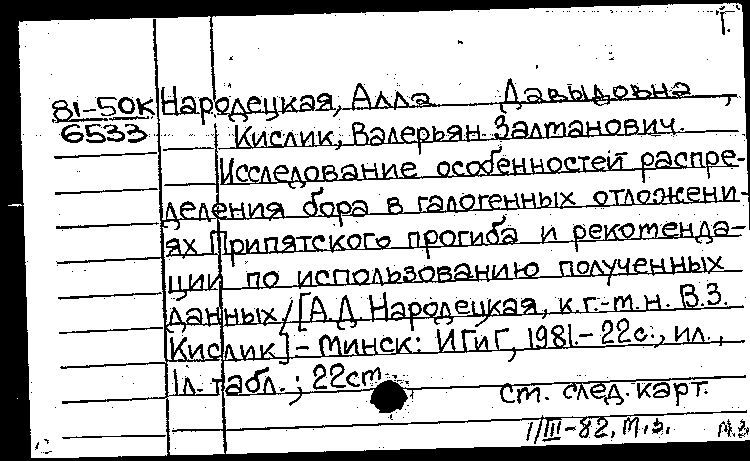 Т.
81-50к Народецкая, Алла Давыдовна,
6533 Кислик, Валерьян Залтанович.
Исследование особенностей распре-
деления бора в галогенных отложени-
ях Припятского прогиба и рекоменда-
ции по использованию полученных
данных/[А.Д. Народецкая, к.г.-м.н. В.З.
Кислик] - Минск: ИГиГ, 1981.- 22с., ил.,
1л. табл.; 22см
См. след. карт.
1/III-82, М.З.